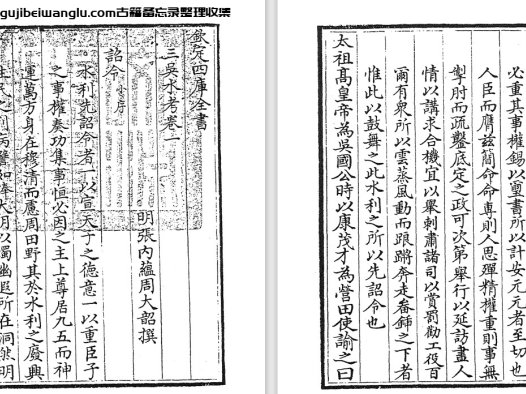 gujibeiwanglu.com古籍备忘录整理收集
欽定四庫全書
三吳水考卷一
明張内藴周大韶撰
詔令小序
水利先詔令者一以宣天子之德意一以重臣子
之事權奏功集事恒必因之主上尊居九五而神
運萬方身在穆清而慮周田野其於水利之廢興
生民之利病大明以燭幽遐所在洞然明
必重其事權錫以璽書所以計安元元者至切也
人臣而膺兹簡命命專則人思殫精權重則事無
掣肘而疏鑿底定之政可次第舉行以延訪盡人
情以講求合機宜以舉刺肅諸司以賞罰勸工役百
爾有衆所以雲蒸風動而踉蹡奔走畚鍤之下者
惟此以鼓舞之此水利之所以先詔令也
太祖高皇帝為吳國公時以康茂才為營田使諭之曰